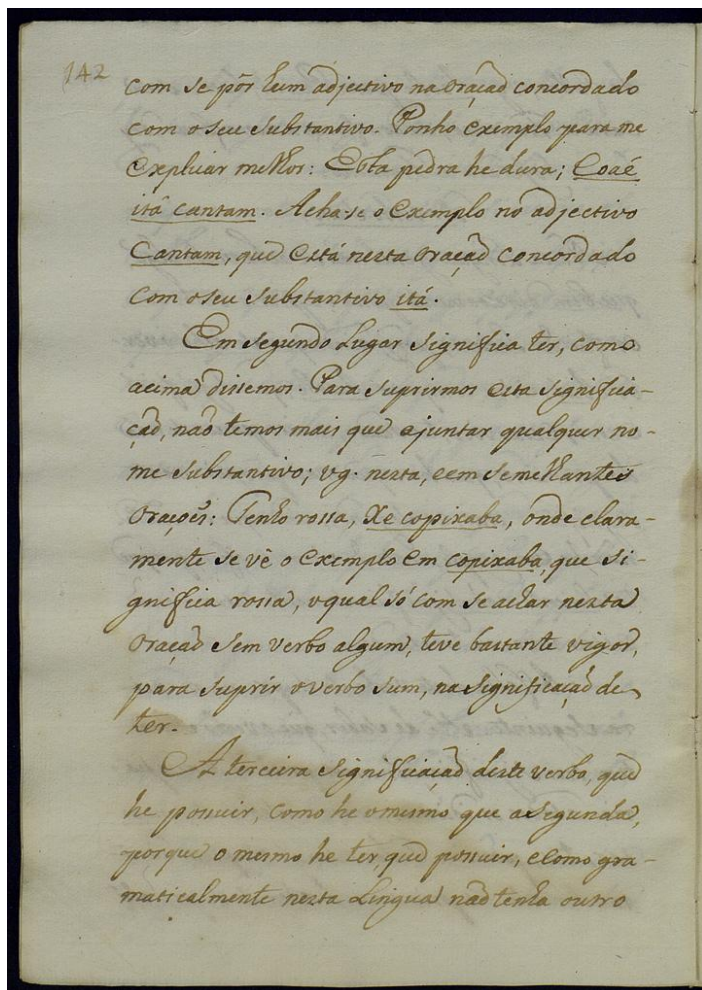 142
com se pôr hum adjectivo na oraçaõ concordado
com o seu substantivo. Ponho exemplo para me
explicar melhor: Esta pedra he dura; Coaé
itá cantam. Acha-se o exemplo no adjectivo
Cantam, que está nesta oraçaõ concordado
com o seu substantivo itá.
Em segundo lugar significa ter, como
acima dissemos. Para suprirmos esta significa-
çaõ, naõ temos mais que ajuntar qualquer no-
me substantivo; vg. nesta, e em semelhantes
oraçoẽs: Tenho rossa, Xe copixaba, onde clara-
mente se vê o exemplo em copixaba, que si-
gnifica rossa, o qual só com se achar nesta
oraçaõ sem verbo algum, teve bastante vigor,
para suprir o verbo sum, na significaçaõ de
ter.
A terceira significaçaõ deste verbo, que
he possuir, como he o mesmo que a segunda,
porque o mesmo he ter, que possuir, e como gra-
maticalmente nesta Lingua naõ tenha outro